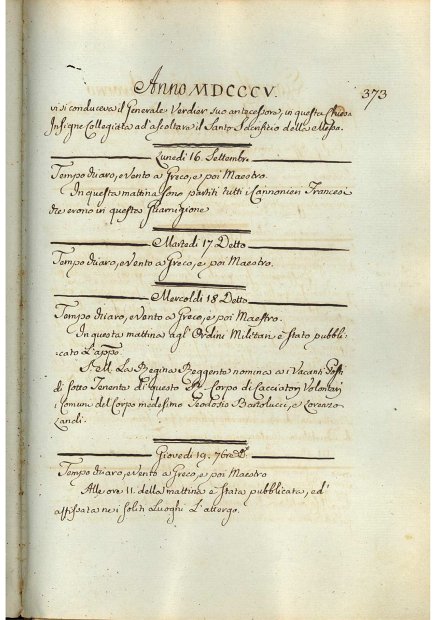 Anno MDCCCV.
373
vi si conduceva il Generale Verdier suo antecessore, in questa Chiesa
Insigne Collegiata ad'ascoltare il Santo Sacrificio della Messa.
Lunedì 16. Settembre
Tempo chiaro, e Vento a Greco, e poi Maestro.
In questa mattina sono partiti tutti i Cannonieri Francesi
che erono in questa Guarnigione
Martedì 17. Detto
Tempo chiaro, e Vento a Greco, e poi Maestro.
Mercoldì 18. Detto
Tempo chiaro, e Vento a Greco, e poi Maestro.
In questa mattina agl' Ordini Militari è stato pubbli-
cato L'appo.
S. M. La Regina Reggente nomina ai Vacanti Posti
di Sotto Tenente di questo Corpo di Cacciatori Volontari
i Comuni del Corpo medesimo Teodosio Bartolucci, e Lorenzo
Zandi.
Giovedì 19. 7bre do
Tempo chiaro, e Vento a Greco, e poi Maestro
Alle ore 11. della mattina è stata pubblicata, ed'
affissata nei soliti Luoghi L'attergo.